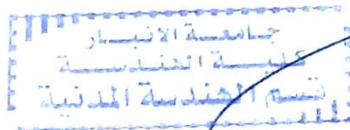 جامعة الانبار
كلية الهندسة
قسم الهندسة المدنية